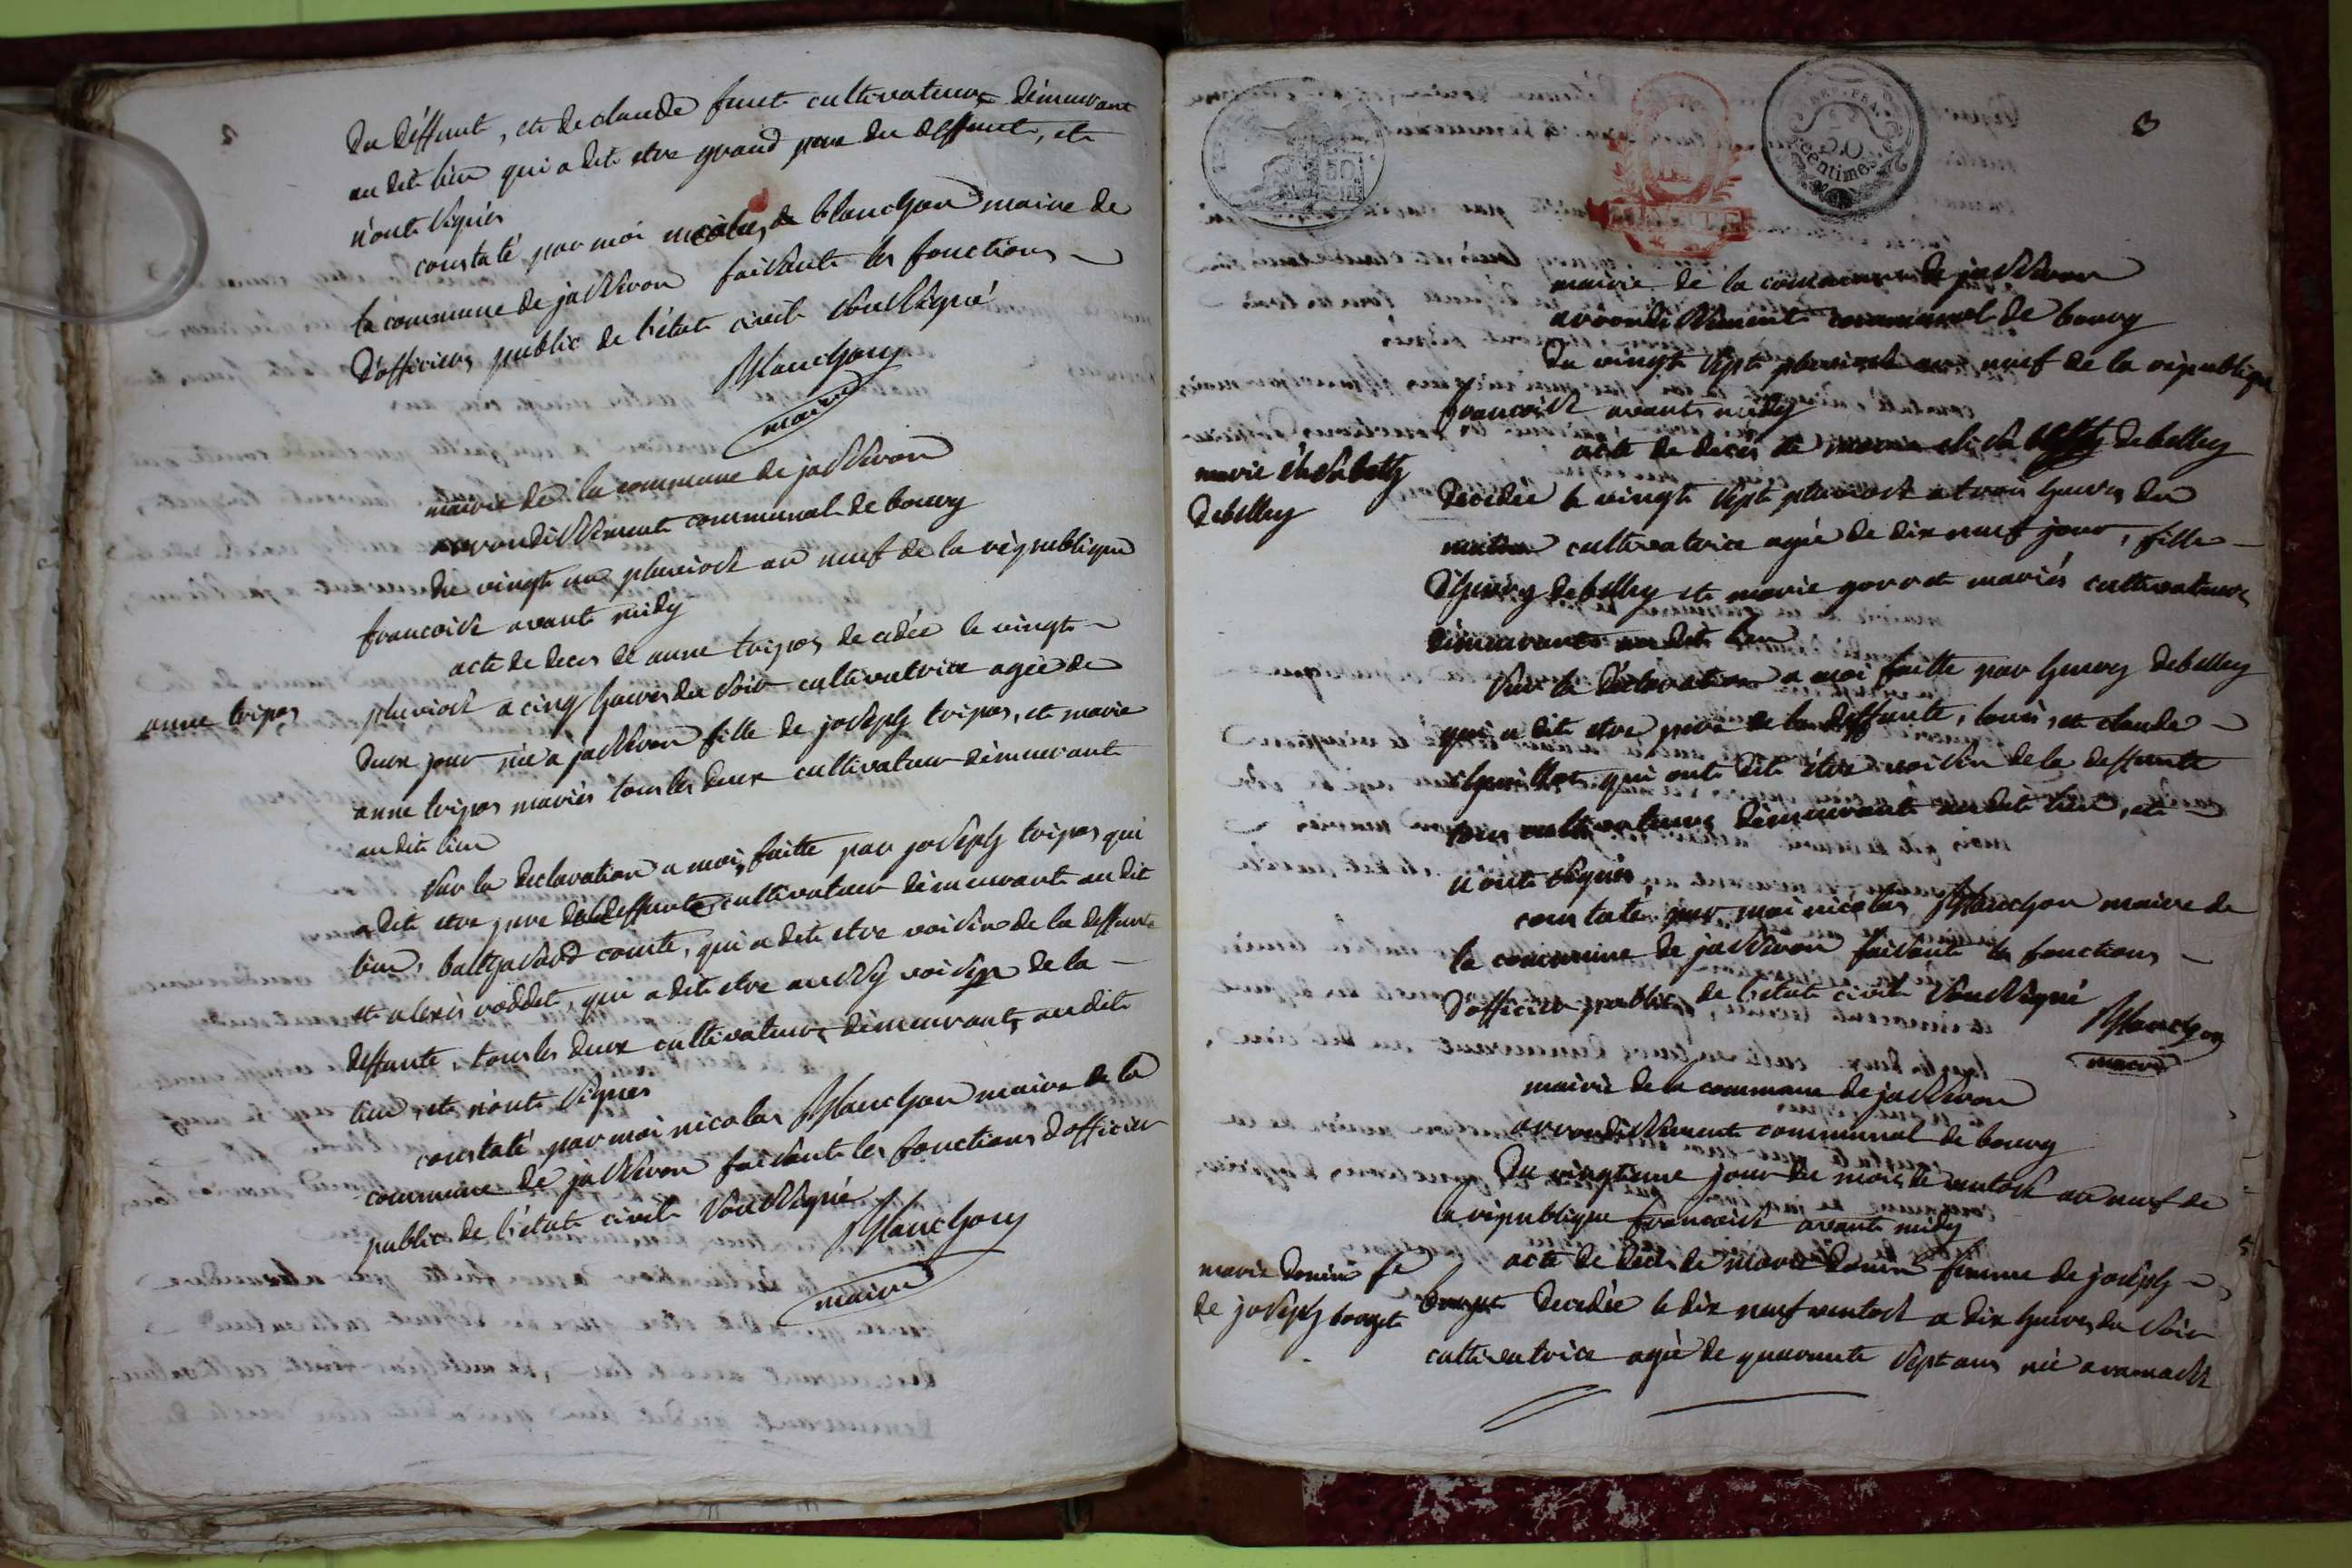 du déffunt, et de claude furet cultivateurs démeurant
au dit lieu qui a dit etre grand pere du deffunt, et
n'ont signés
constaté par moi nicolas blanchon maire de
la commune de jasseron faisant les fonctions
d'officiers public de l'état civil soussigné
Blanchon
maire
mairie de la commune de jasseron
arrondissement communal de bourg
du vingt un pluviose an neuf de la république
francoise avant midy
anne tripos
acte de deces de anne tripos décédée le vingt
pluviose a cinq heures du soir cultivatrice agée de
deux jour née à jasseron fille de joseph tripos, et marie
anne tripos mariés tous les deux cultivateur démeurant
au dit lieu
sur la déclaration a moi faitte par joseph tripos qui
a dit etre pere de la deffunte cultivateur démeurant au dit
lieu, balthasard comte, qui a dit etre voisin de la deffunte
et alexis roddet, qui a dit etre aussy voisin de la
deffunte, tous les deux cultivateurs démeurant, au dit
lieu, et n'ont signes
constaté par moi nicolas Blanchon maire de la
commune de jasseron faisant les fonctions d'officier
public de l'état civil soussigné
Blanchon
maire
3
50
centimes
mairie de la commune de jasseron
arrondissement communal de bourg
du vingt sept pluviose an neuf de la république
francoise avant midy
marie élisabeth
debelley
acte de deces de marie elisabeth debelley
décédée le vingt sept pluviose a trois heures du
matin cultivatrice agée de dix neuf jour, fille
d'henry debelley et marie gorret mariés cultivateurs
démeurants au dit lieu
sur la déclaration a moi faitte par henry debelley
qui a dit etre pere de la deffunte, louis, et claude
qui ont dit étre voisin de la deffunte
tous cultivateurs démeurant au dit lieu, et
n'ont signés,
constaté par moi nicolas Blanchon maire de
la commune de jasseron faisant les fonctions
d'officier public de l'état civil soussigné
Blanchon
maire
mairie de la commune de jasseron
arrondissement communal de bourg
du vingtieme jour du mois de ventose an neuf de
la république francoise avant midy
marie donin fe
de joseph
acte de deces de marie donin femme de joseph
décédée le dix neuf ventose a dix heures du soir
cultivatrice agée de quarante sept ans née a ramasse